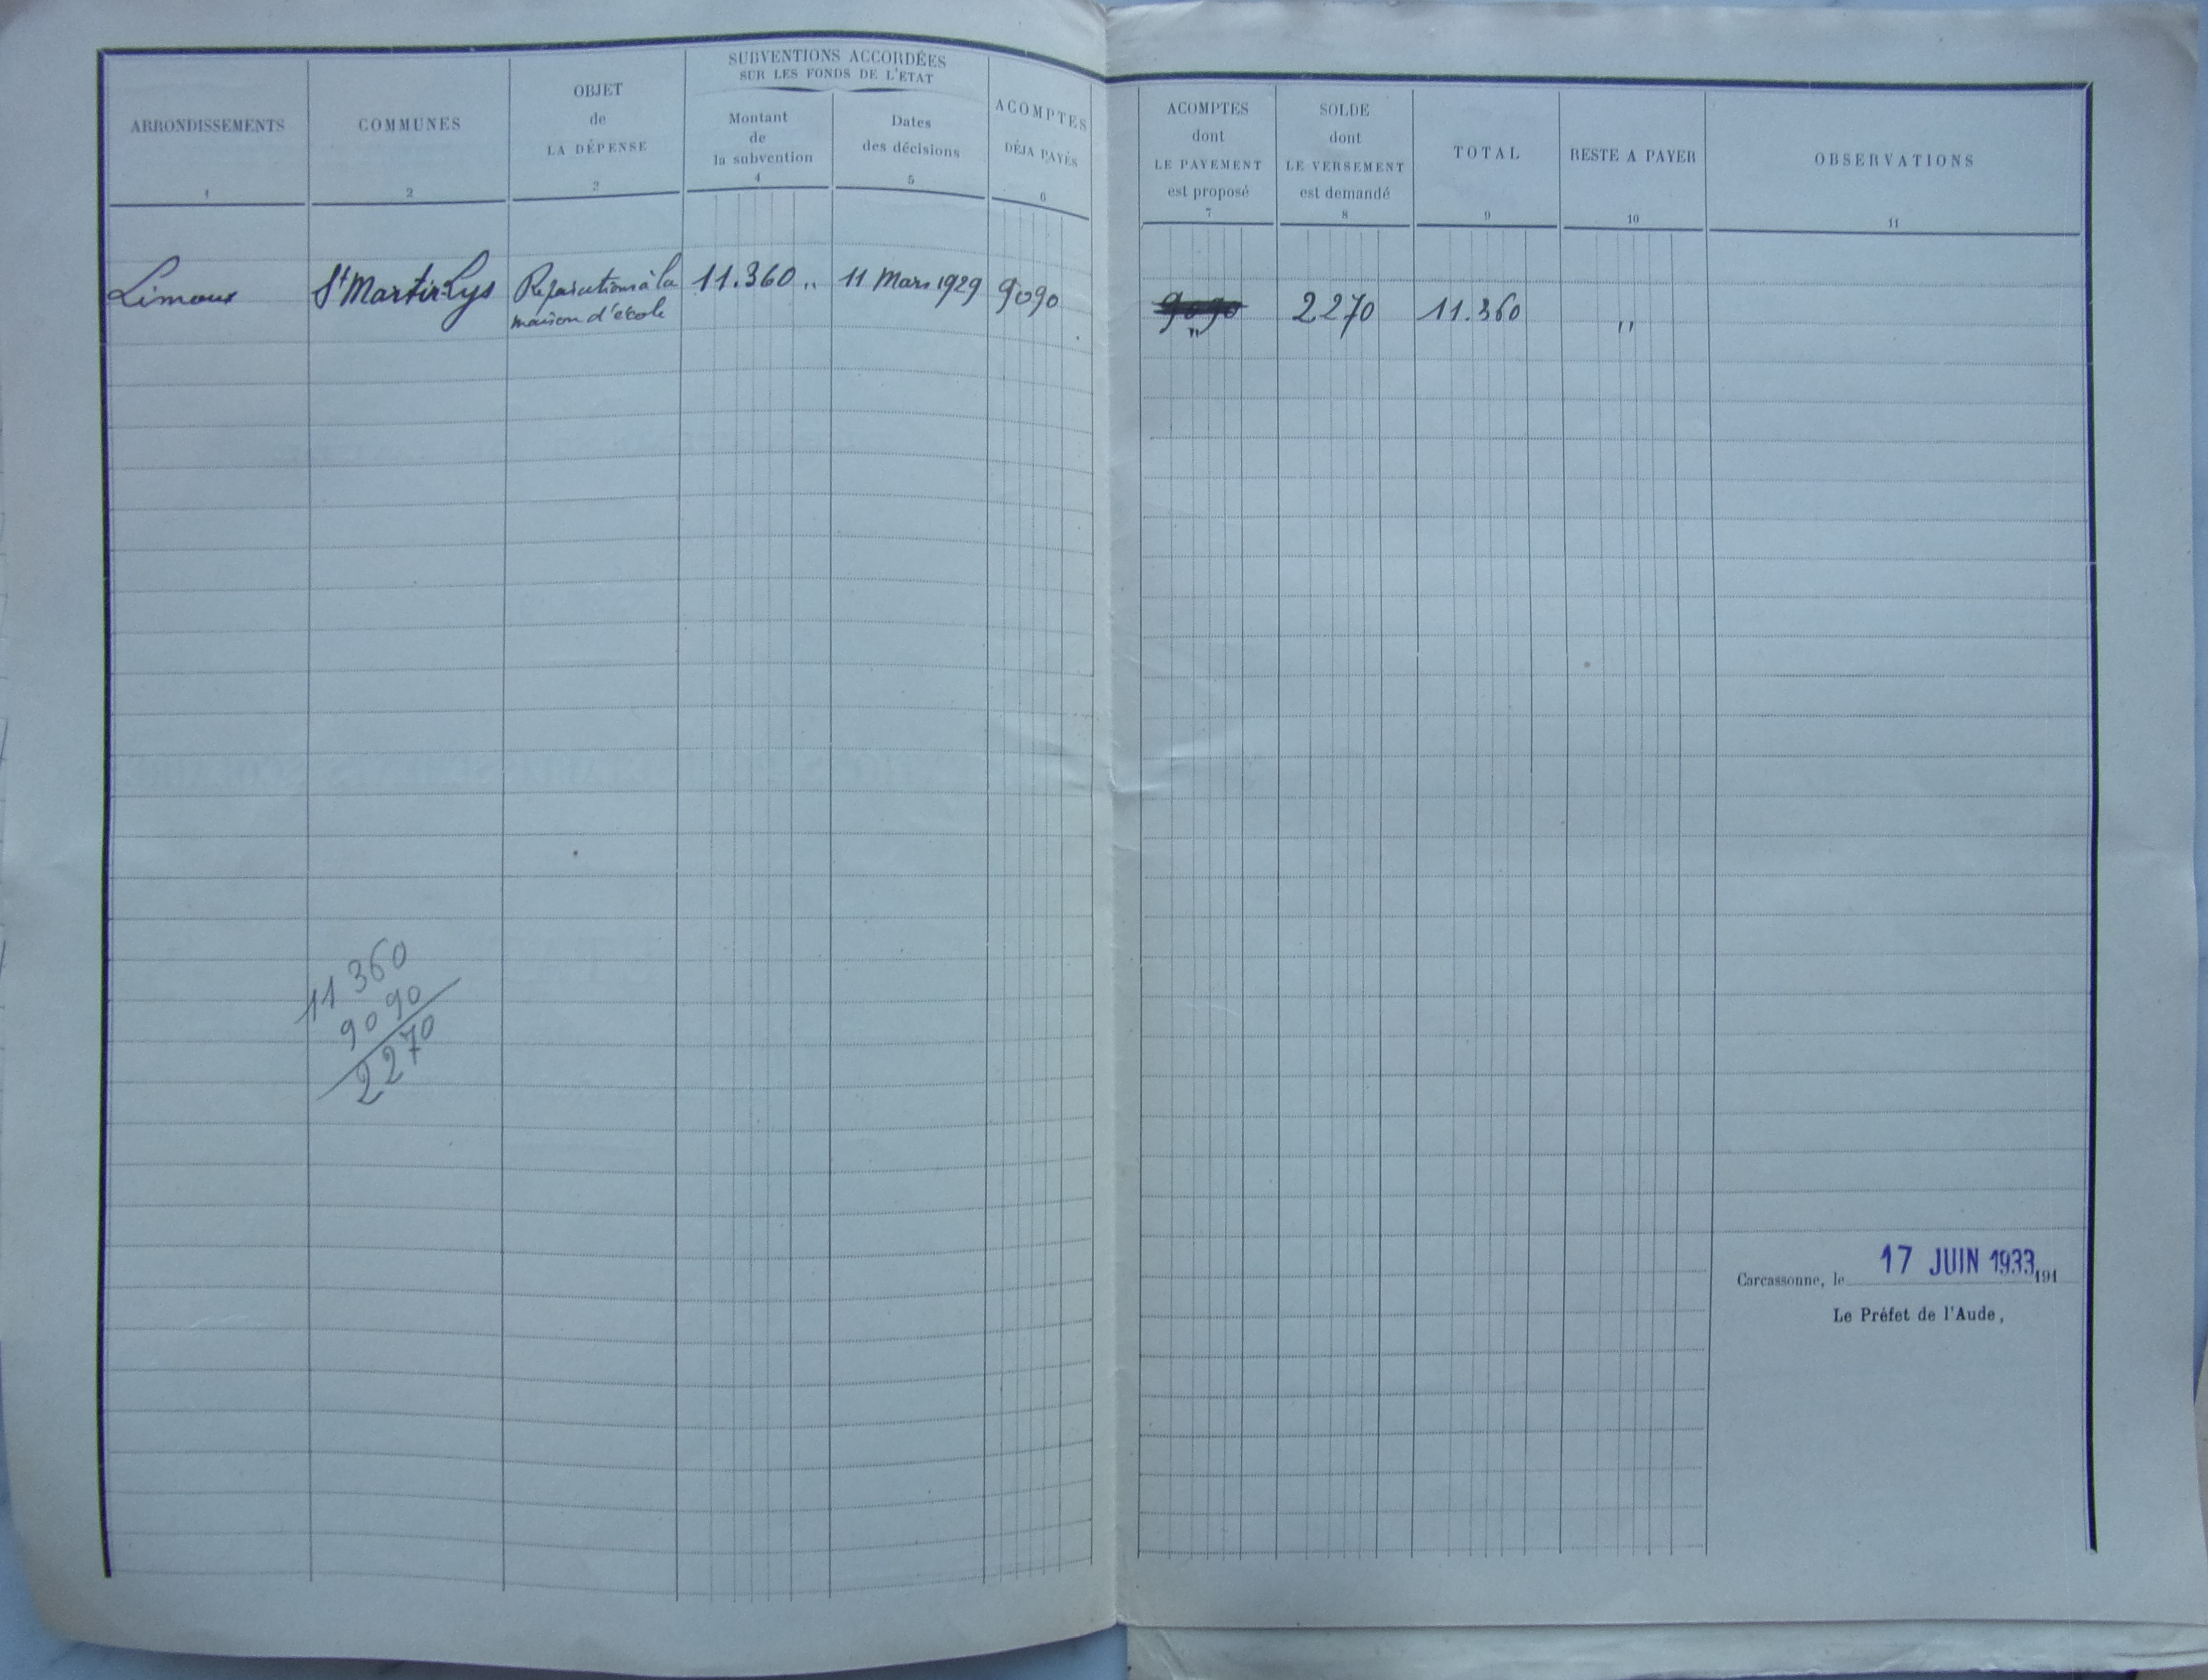 ARRONDISSEMENTS
1
COMMUNES
2
OBJET
de
LA DÉPENSE
3
SUBVENTIONS ACCORDÉES
SUR LES FONDS DE L'ETAT
Montant
de
la subvention
4
Dates
des décisions
5
ACOMPTES
DÉJA PAYÉS
6
ACOMPTES
dont
LE PAYEMENT
est proposé
7
SOLDE
dont
LE VERSEMENT
est demandé
8
TOTAL
9
RESTE A PAYER
10
OBSERVATIONS
11
Limoux
St Martin-Lys
Réparations à la
maison d'école
11.360 "
11 Mars 1929
9090
9090
"
2270
11.360
"
11 360
9090
2270
Carcassonne, le 17 JUIN 1933 191
Le Préfet de l'Aude,